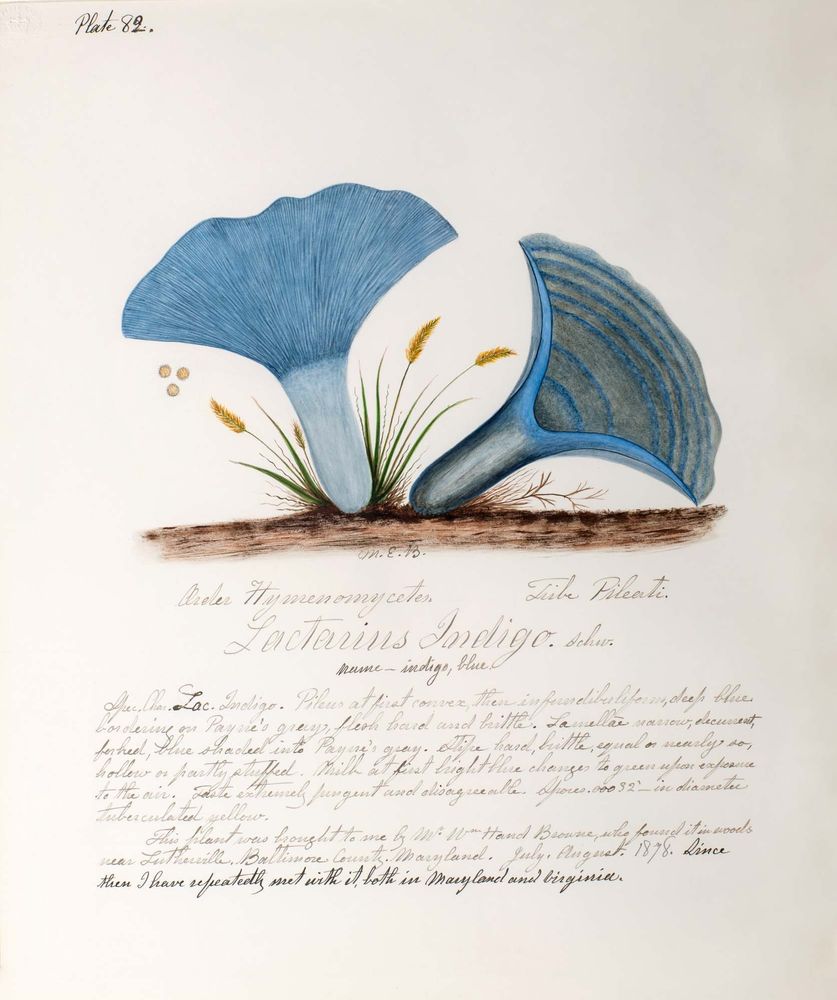 Plate 82.
M. E. B.
Order Hymenomycetes. Tribe Pileati.
Lactarius Indigo. Schw.
name – indigo, blue.
Spec. Char. Lac. Indigo. Pileus at first convex, then infundibuliform, deep blue
bordering on Payne's gray, flesh hard and brittle. Lamellae narrow, decurrent,
forked, blue shaded into Payne's gray. Stipe hard, brittle, equal or nearly so,
hollow or partly stuffed. Milk at first bright blue changes to green upon exposure
to the air. Taste extremely pungent and disagreeable. Spores .00032" in diameter
tuberculated yellow.
This plant was brought to me by Mr. Wm Hand Browne, who found it in woods
near Lutherville, Baltimore County, Maryland. July, August. 1878. Since
then I have repeatedly met with it, both in Maryland and Virginia.